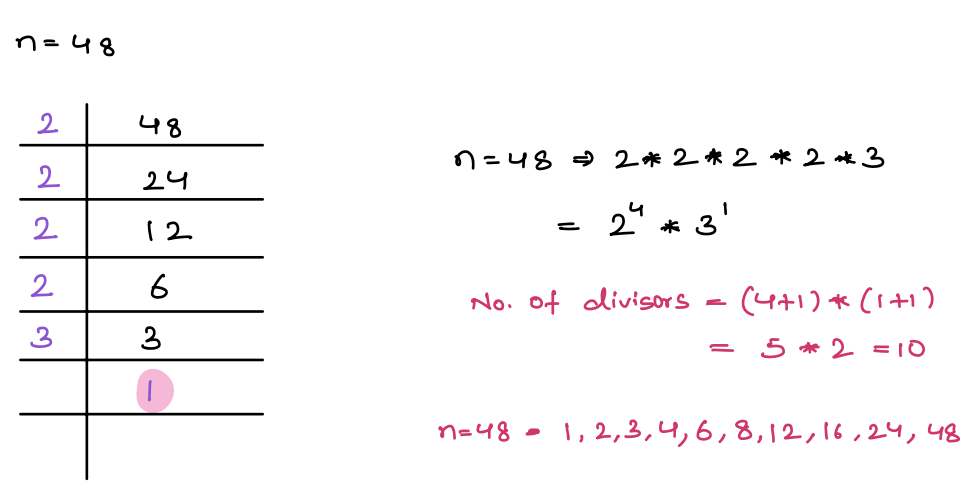 n = 48
2 48
2 24
2 12
2 6
3 3
1
n = 48 ⇒ 2 * 2 * 2 * 2 * 3
= 2⁴ * 3¹
No. of divisors = (4+1) * (1+1)
= 5 * 2 = 10
n=48 - 1, 2, 3, 4, 6, 8, 12, 16, 24, 48